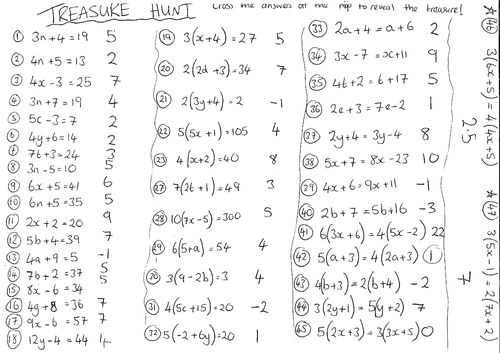 TREASURE HUNT
Cross the answers on the map to reveal the treasure!
① 3n+4=19 5
② 4n+5=13 2
③ 4x-3=25 7
④ 3n+7=19 4
⑤ 5c-3=7 2
⑥ 4y+6=14 2
⑦ 7t+3=24 3
⑧ 3n-5=10 5
⑨ 6x+5=41 6
⑩ 6n+5=35 5
⑪ 2x+2=20 9
⑫ 5b+4=39 7
⑬ 4a+9=5 -1
⑭ 7b+2=37 5
⑮ 8x-6=34 5
⑯ 4g+8=36 7
⑰ 9x-6=57 7
⑱ 12y-4=44 4
⑲ 3(x+4)=27 5
⑳ 2(2d+3)=34 7
㉑ 2(3y+4)=2 -1
㉒ 5(5x+1)=105 4
㉓ 4(x+2)=40 8
㉗ 7(2t+1)=49 3
㉘ 10(7x-5)=300 5
㉙ 6(5+a)=54 4
㉚ 3(9-2b)=3 4
㉛ 4(5c+15)=20 -2
㉜ 5(-2+6y)=20 1
㉝ 2a+4=a+6 2
㉞ 3x-7=x+11 9
㉟ 4t+2=t+17 5
㊱ 2e+3=7e-2 1
㊲ 2y+4=3y-4 8
㊳ 5x+7=8x-23 10
㊴ 4x+6=9x+11 -1
㊵ 2b+7=5b+16 -3
㊶ 6(3x+6)=4(5x-2) 22
㊷ 5(a+3)=4(2a+3) 1
㊸ 4(b+3)=2(b+4) -2
㊹ 3(2y+1)=5(y+2) 7
㊺ 5(2x+3)=3(3x+5) 0
★㊻ 3(6x+5)=4(4x+5) 2.5
★㊼ 3(5x-1)=2(7x+2) 7